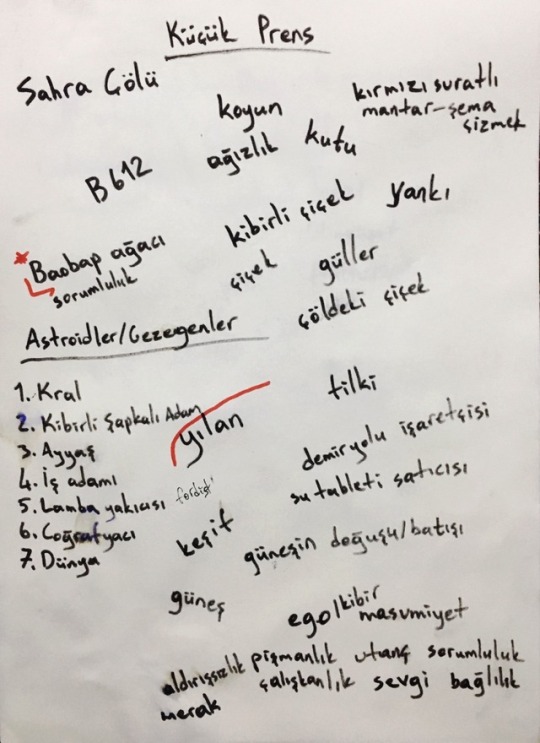 Küçük Prens
Sahra Çölü
koyun
ağızlık kutu
kırmızı suratlı
mantar-şema
çizmek
B612
kibirli çiçek
yankı
*Baobap ağacı
sorumluluk
çiçek
güller
çöldeki çiçek
Astroidler/Gezegenler
1. Kral
2. Kibirli Şapkalı Adam
3. Ayyaş
4. İş adamı
5. Lamba yakıcısı
6. Coğrafyacı
7. Dünya
yılan
tilki
demiryolu işaretçisi
su tableti satıcısı
keşif
güneşin doğuşu/batışı
güneş
ego/kibir
masumiyet
aldırışsızlık pişmanlık utanç sorumluluk
çalışkanlık sevgi bağlılık
merak